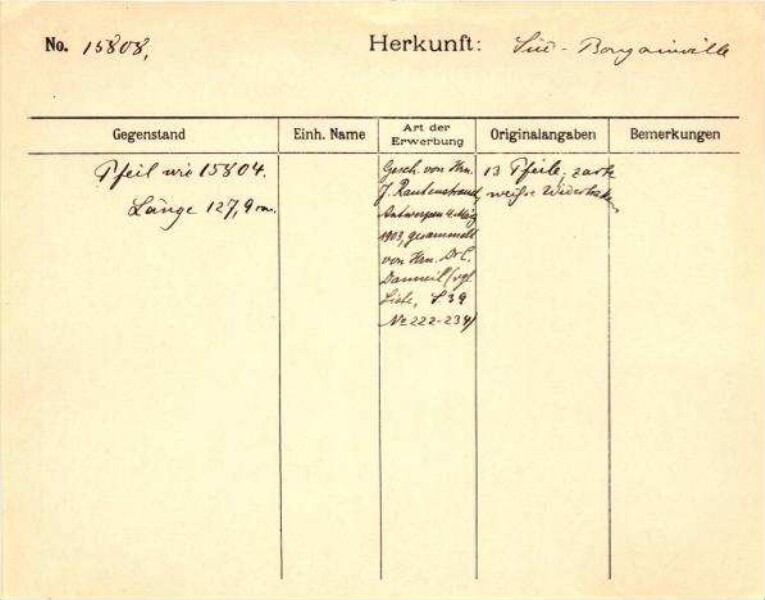 No. 15808, Herkunft: Süd-Bougainville
Gegenstand Einh. Name Art der Erwerbung Originalangaben Bemerkungen
Pfeil wie 15804.
Länge 127,9 cm.
Gesch. von Hrn.
J. Rautenstrauch,
Antwerpen 4. März
1903, gesammelt
von Hrn. Dr C.
Danneil (vgl.
Liste, S 39
No 222-234)
13 Pfeile; zarte
weiße Widerhaken